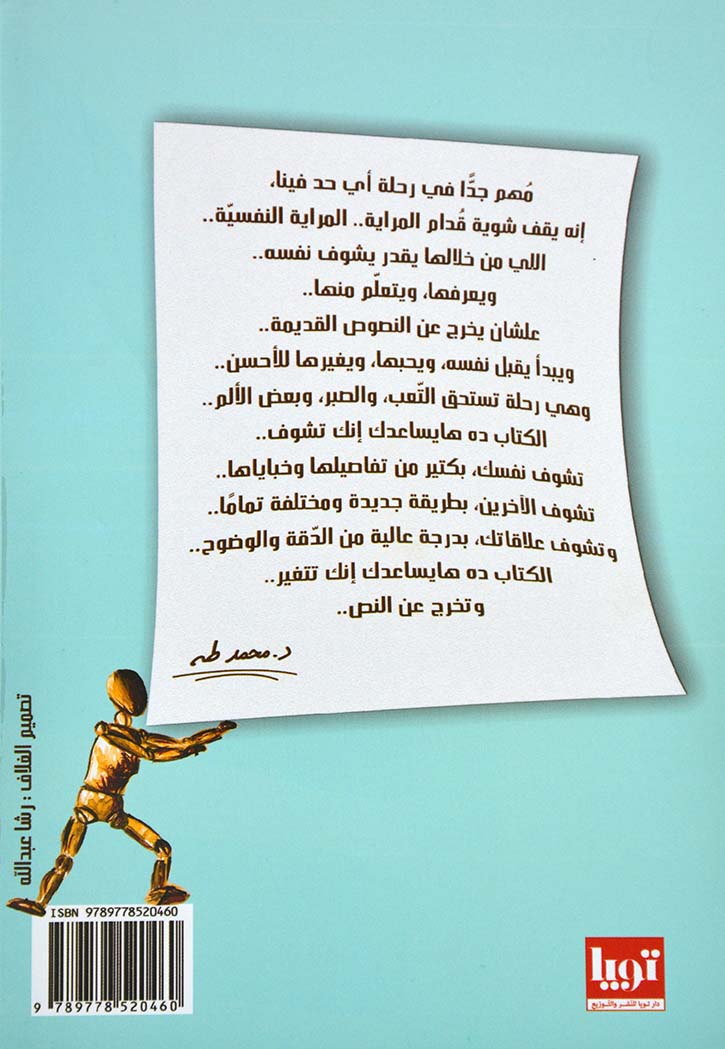 مُهم جدًّا في رحلة أي حد فينا،
إنه يقف شوية قُدام المراية.. المراية النفسيّة..
اللي من خلالها يقدر يشوف نفسه..
ويعرفها، ويتعلّم منها..
علشان يخرج عن النصوص القديمة..
ويبدأ يقبل نفسه، ويحبها، ويغيرها للأحسن..
وهي رحلة تستحق التّعب، والصبر، وبعض الألم..
الكتاب ده هايساعدك إنك تشوف..
تشوف نفسك، بكتير من تفاصيلها وخباياها..
تشوف الآخرين، بطريقة جديدة ومختلفة تمامًا..
وتشوف علاقاتك، بدرجة عالية من الدّقة والوضوح..
الكتاب ده هايساعدك إنك تتغير..
وتخرج عن النص..
د. محمد طه
تصميم الغلاف : رشا عبدالله
ISBN 9789778520460
9 789778 520460
تويا
دار تويا للنشر والتوزيع